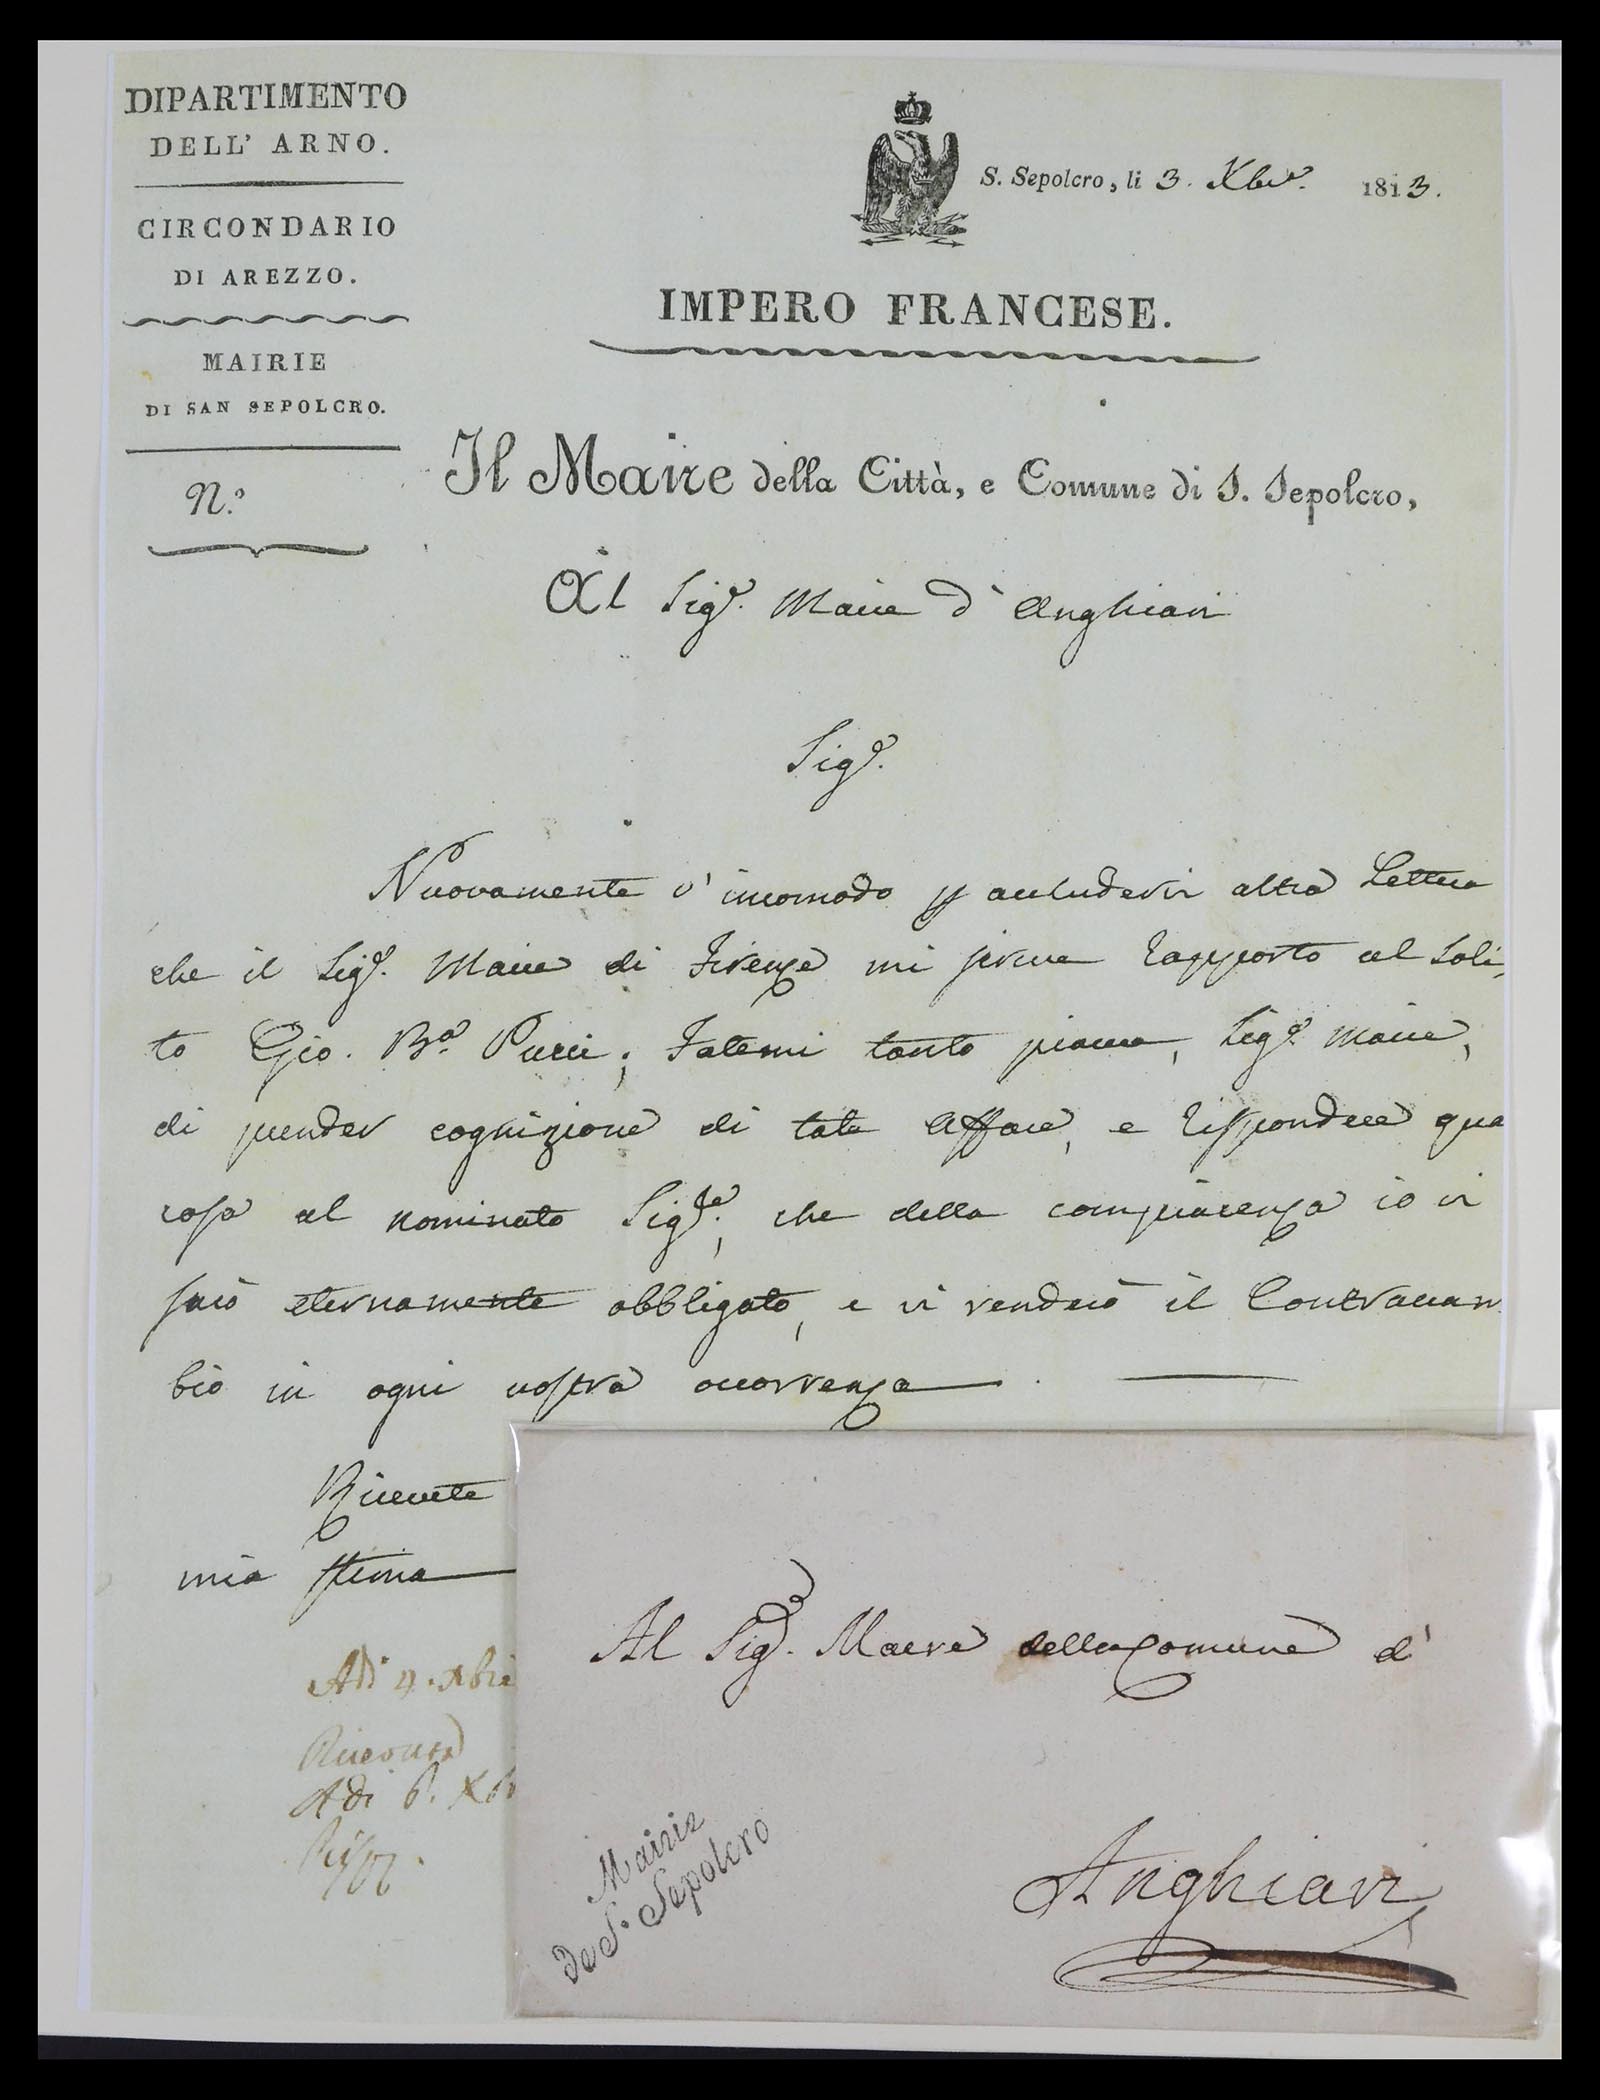 DIPARTIMENTO
DELL' ARNO.
CIRCONDARIO
DI AREZZO.
MAIRIE
DI SAN SEPOLCRO.
N.º
S. Sepolcro, li 3. Xbre. 1813.
IMPERO FRANCESE.
Il Maire della Città, e Comune di S. Sepolcro,
Al Sigre. Maire d' Anghiari
Sigre.
Nuovamente v' incomodo p accludervi altra Lettera
che il Sigre. Maire di Firenze mi scrive rapporto al Soli,
to Gio. Bta. Pucci; Fatemi tanto piacere, Sigre. Maire,
di prender cognizione di tale affare, e rispondere qua
cosa al nominato Sigre., che della compiacenza io vi
sarò eternamente obbligato, e vi renderò il Contraccam
bio in ogni vostra occorrenza.
Ricevete
mia stima
Adì 4. Xbre
Ricevuta
Adi 6. Xbr
Risp.
Al Sigr. Maere della Comune d'
Anghiari
Mairie
De S. Sepolcro